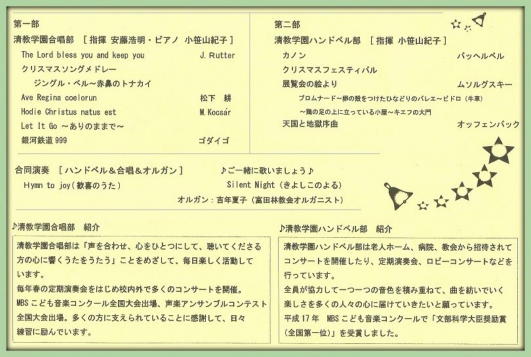 第一部
清教学園合唱部 ［指揮 安藤浩明・ピアノ 小笹山紀子］
The Lord bless you and keep you J. Rutter
クリスマスソングメドレー
ジングル・ベル～赤鼻のトナカイ
Ave Regina coelorum 松下 耕
Hodie Christus natus est M.Kocsár
Let It Go ～ありのままで～
銀河鉄道999 ゴダイゴ
第二部
清教学園ハンドベル部 ［指揮 小笹山紀子］
カノン パッヘルベル
クリスマスフェスティバル
展覧会の絵より ムソルグスキー
プロムナード～卵の殻をつけたひなどりのバレエ～ビドロ（牛車）
～鶏の足の上に立っている小屋～キエフの大門
天国と地獄序曲 オッフェンバック
合同演奏 ［ハンドベル＆合唱＆オルガン］ ♪ご一緒に歌いましょう♪
Hymn to joy(歓喜のうた) Silent Night（きよしこのよる）
オルガン：吉年夏子（富田林教会オルガニスト）
♪清教学園合唱部 紹介
清教学園合唱部は「声を合わせ、心をひとつにして、聴いてくださる
方の心に響くうたをうたう」ことをめざして、毎日楽しく活動して
います。
毎年春の定期演奏会をはじめ校内外で多くのコンサートを開催。
MBSこども音楽コンクール全国大会出場、声楽アンサンブルコンテスト
全国大会出場。多くの方に支えられていることに感謝して、日々
練習に励んでいます。
♪清教学園ハンドベル部 紹介
清教学園ハンドベル部は老人ホーム、病院、教会から招待されて
コンサートを開催したり、定期演奏会、ロビーコンサートなどを
行っています。
全員が協力して一つ一つの音色を積み重ねて、曲を紡いでいく
楽しさを多くの人々の心に届けていきたいと願っています。
平成17年 MBSこども音楽コンクールで「文部科学大臣奨励賞
（全国第一位）」を受賞しました。